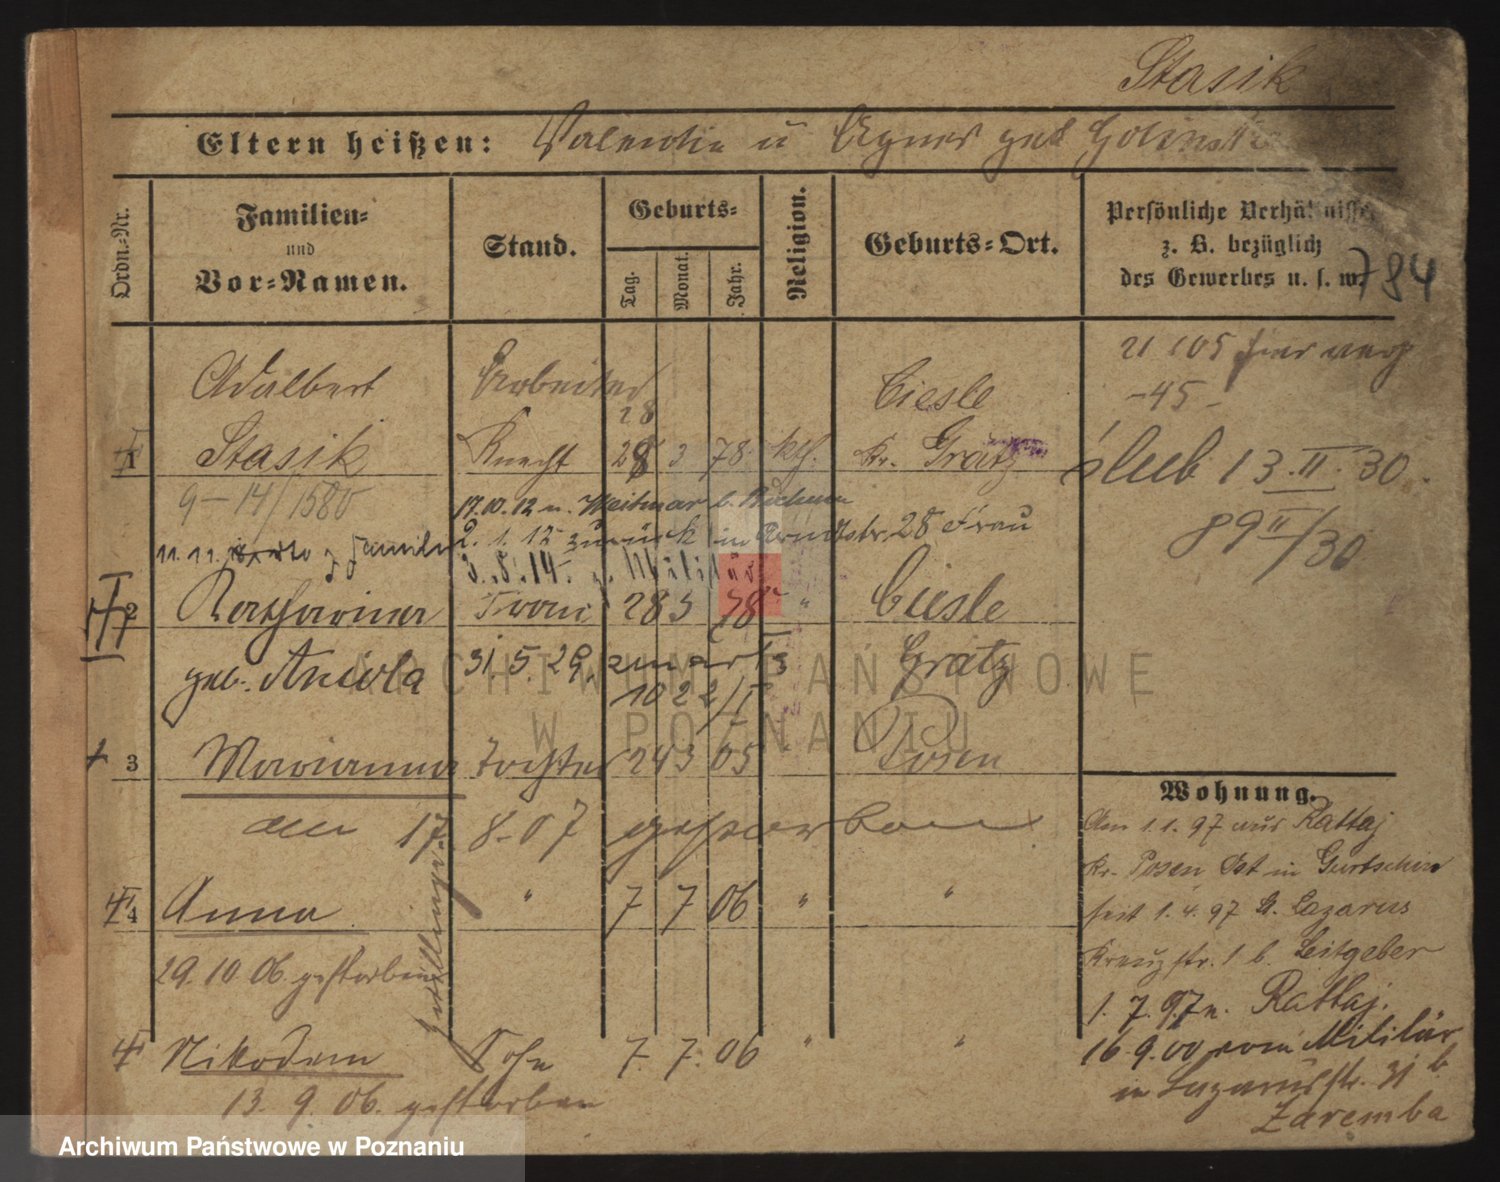 Stasik
Eltern heißen: Valentin u Agnes geb Golinska
Ordn.-Nr.
Familien- und Vor-Namen.
Stand.
Geburts-
Tag.
Monat.
Jahr.
Religion.
Geburts-Ort.
Persönliche Verhältnisse
z. B. bezüglich
des Gewerbes u. s. w.
784
21 105
-45-
Adalbert Arbeiter Ciesle
28
1 Stasik Knecht 28 3 78 kth. Kr. Grätz
ślub 13.II.30.
9-14/1580
89 II/30
17.10.12 n. Weitmar b. Bochum
2. 1. 12 zurück in Arndtstr. 28 Frau
11. 11.
3. 8. 14. z. Militär
2 Katharina Frau 28 3 78 " Ciesle
geb. Anioła 31. 5. 29. Grätz
10 22/I
3 Marianna Tochter 24 3 05 " Posen
den 17. 8-07 gestorben
Zwillinge
4 Anna " 7 7 06 " "
29. 10 06. gestorben
Nikodem Sohn 7. 7. 06 " "
13. 9. 06. gestorben
Wohnung.
Am 1.1. 97 aus Rattaj
Kr. Posen Ost in Gurtschin
seit 1. 4. 97 St. Lazarus
Kreuzstr. 1 b. Leitgeber
1. 7. 97 n. Rattaj.
16. 9. 00 vom Militär
in Lazarusstr. 31 b
Zaremba
ARCHIWUM PAŃSTWOWE
W POZNANIU
Archiwum Państwowe w Poznaniu